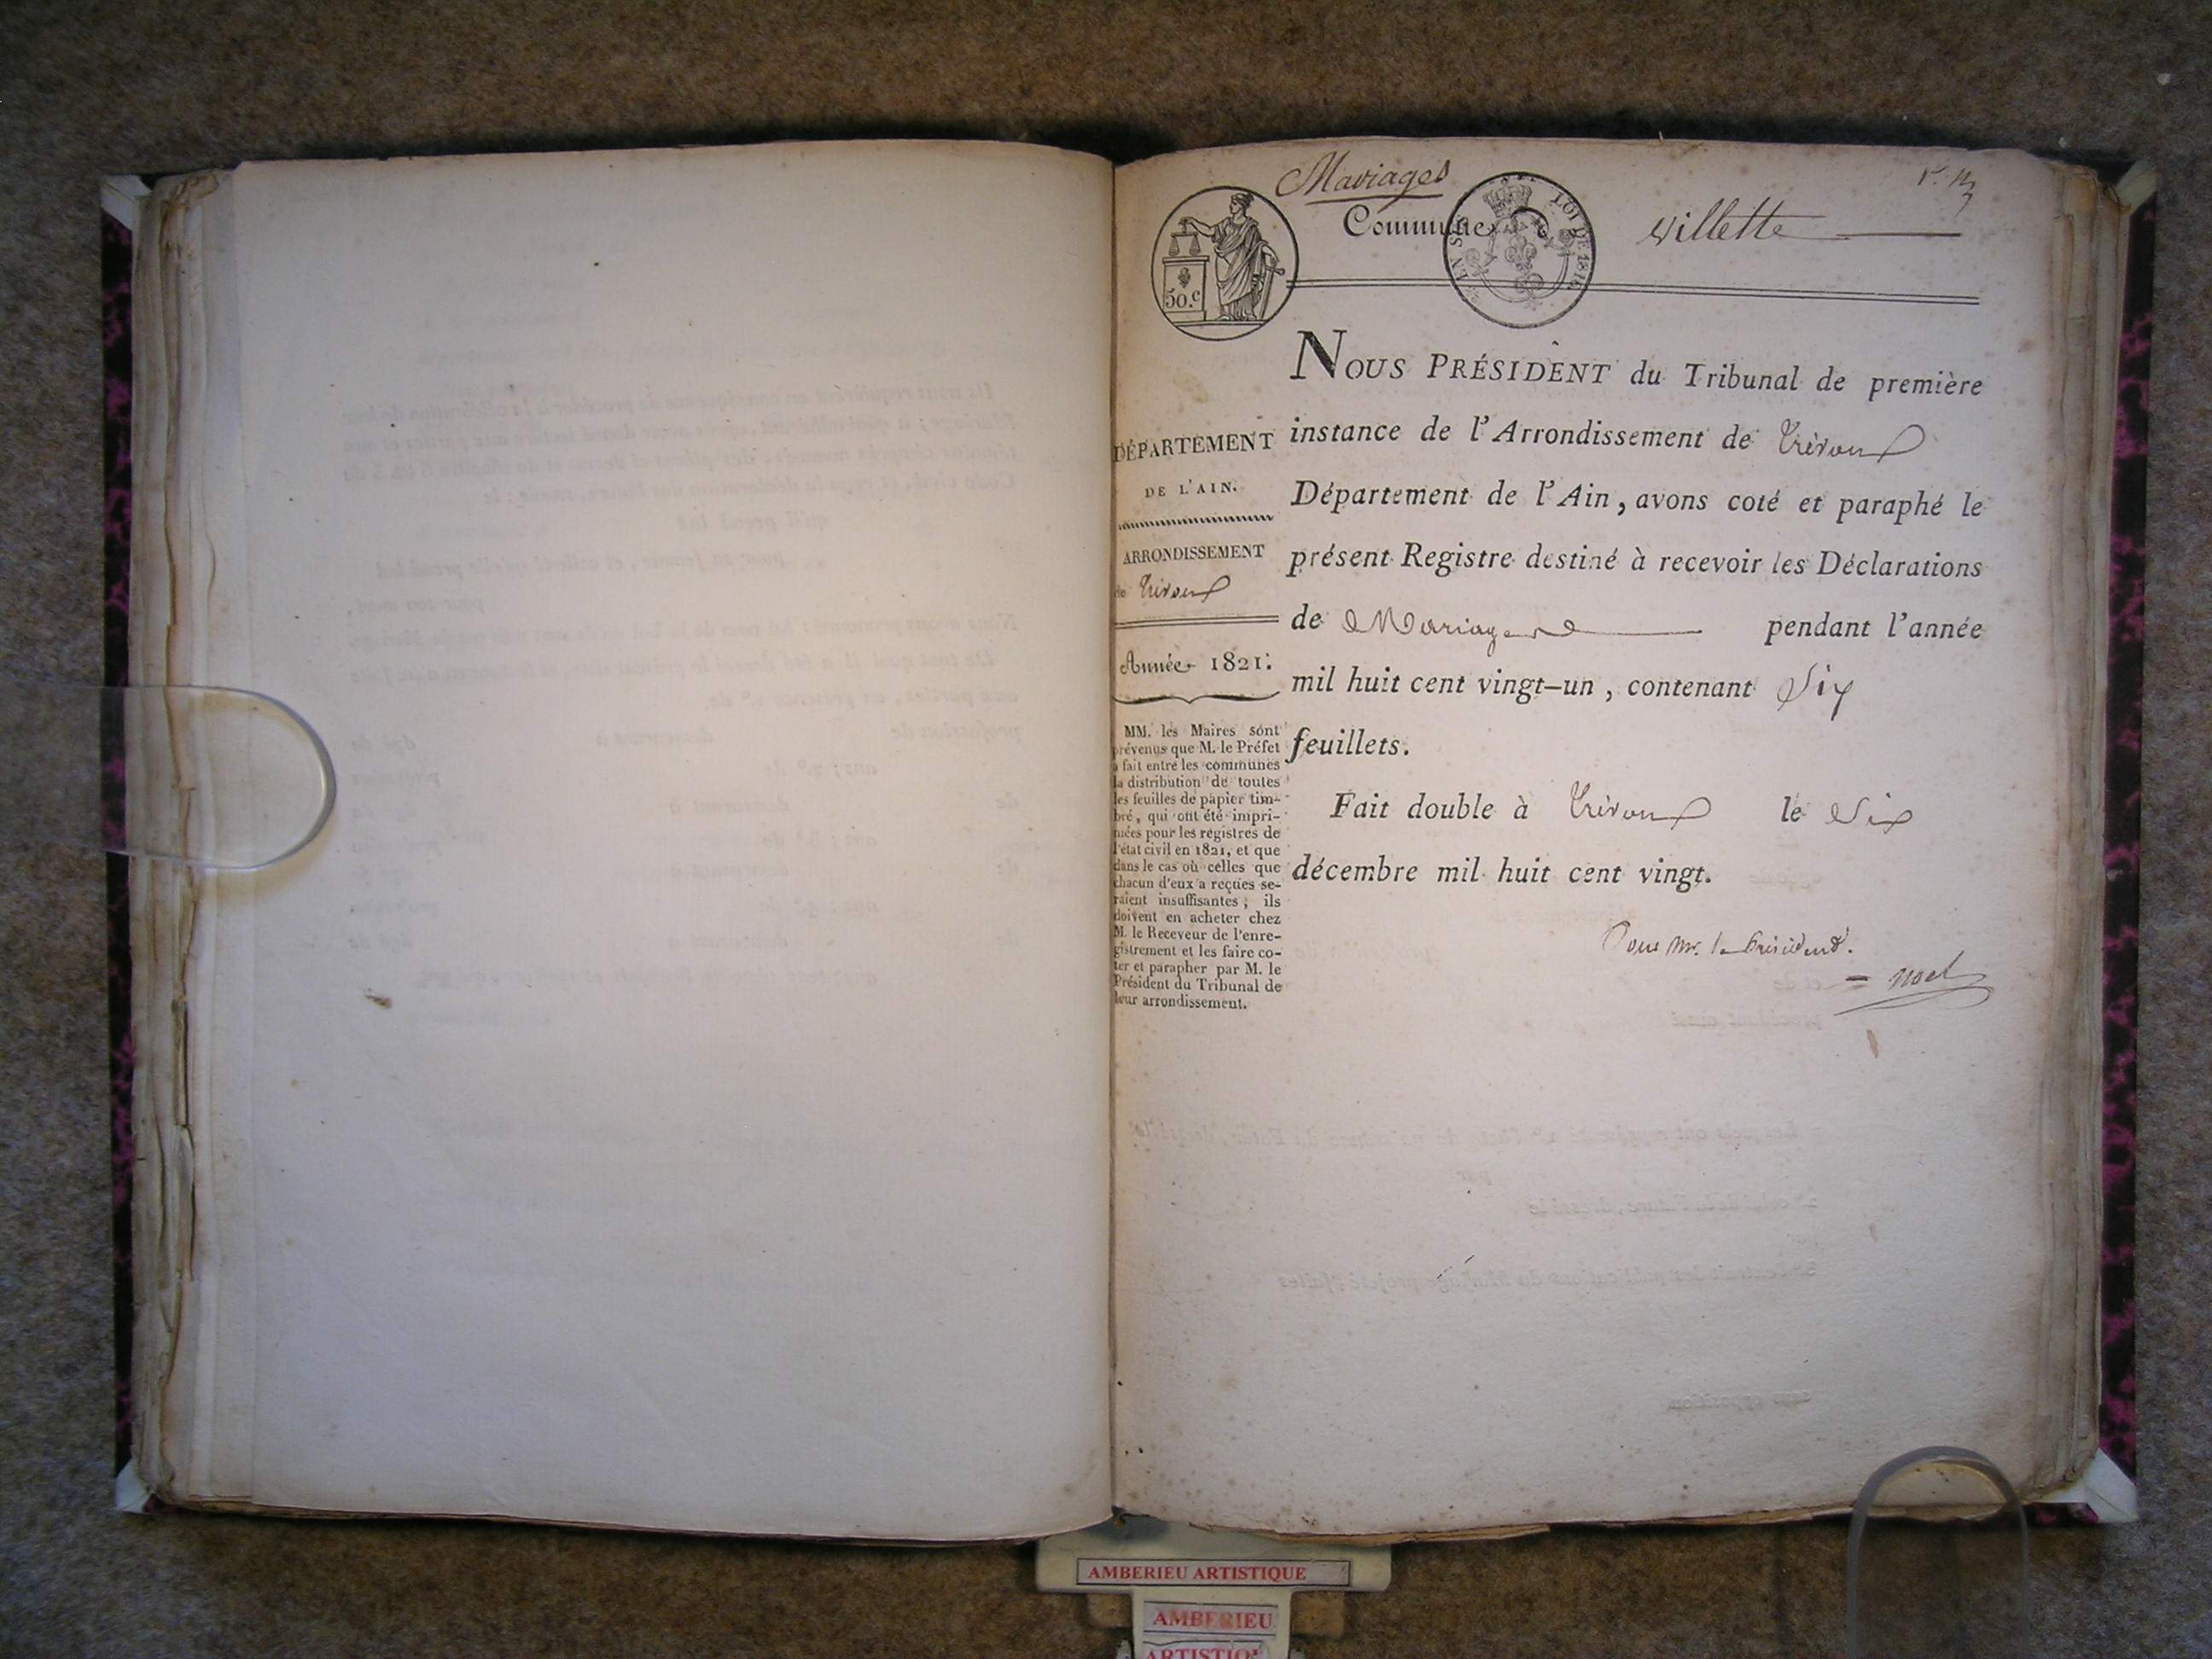 Mariages
1er. N
Commune de Villette
50.c
EN SUS
LOI DE 1816
DÉPARTEMENT
DE L'AIN.
ARRONDISSEMENT
de Trévoux
Année 1821.
MM. les Maires sont
prévenus que M. le Préfet
a fait entre les communes
la distribution de toutes
les feuilles de papier tim-
bré, qui ont été impri-
mées pour les registres de
l'état civil en 1821, et que
dans le cas où celles que
chacun d'eux a reçues se-
raient insuffisantes, ils
doivent en acheter chez
M. le Receveur de l'enre-
gistrement et les faire co-
ter et parapher par M. le
Président du Tribunal de
leur arrondissement.
NOUS PRÉSIDENT du Tribunal de première
instance de l'Arrondissement de Trévoux
Département de l'Ain, avons coté et paraphé le
présent Registre destiné à recevoir les Déclarations
de Mariages pendant l'année
mil huit cent vingt-un, contenant Six
feuillets.
Fait double à Trévoux le Six
décembre mil huit cent vingt.
Pour Mr. le Président.
Noel
AMBERIEU ARTISTIQUE
AMBERIEU
ARTISTIQUE